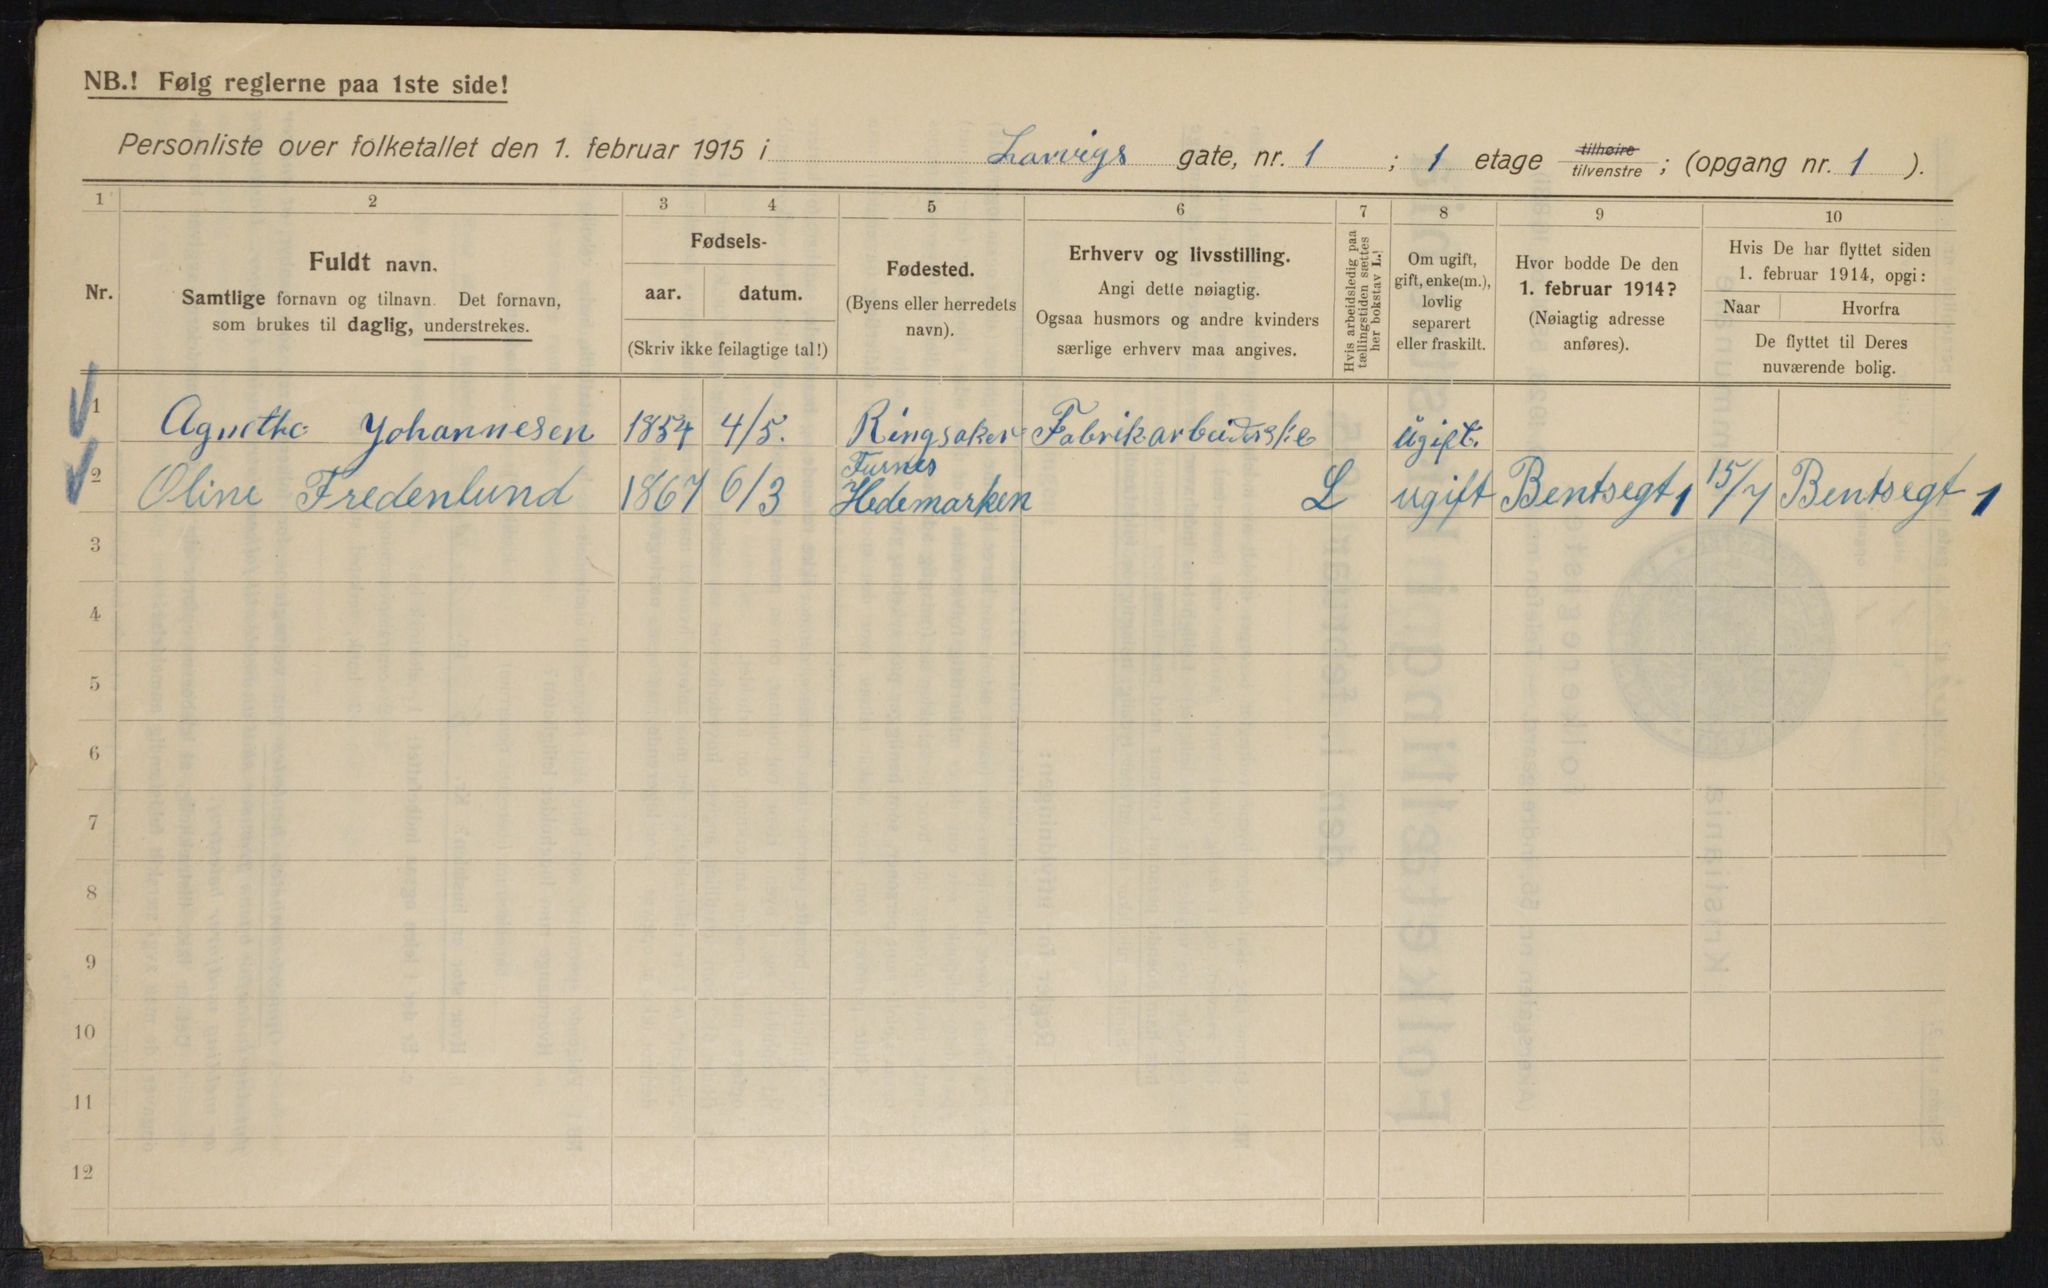 NB.! Følg reglerne paa 1ste side!
Personliste over folketallet den 1. februar 1915 i Larvigs gate, nr. 1 ; 1 etage tilhøire tilvenstre ; (opgang nr. 1 ).
1 2 3 4 5 6 7 8 9 10
Nr.
Fuldt navn.
Samtlige fornavn og tilnavn. Det fornavn,
som brukes til daglig, understrekes.
Fødsels-
aar. datum.
(Skriv ikke feilagtige tal!)
Fødested.
(Byens eller herredets
navn).
Erhverv og livsstilling.
Angi dette nøiagtig.
Ogsaa husmors og andre kvinders
særlige erhverv maa angives.
Hvis arbeidsledig paa
tællingstiden sættes
her bokstav L.!
Om ugift,
gift, enke(m.),
lovlig
separert
eller fraskilt.
Hvor bodde De den
1. februar 1914?
(Nøiagtig adresse
anføres).
Hvis De har flyttet siden
1. februar 1914, opgi:
Naar Hvorfra
De flyttet til Deres
nuværende bolig.
1 Agnethe Johannesen 1854 4/5. Ringsaker Fabrikarbeiderske ugift.
2 Oline Fredenlund 1867 6/3 Furnes Hedemarken L ugift Bentsegt 1 15/7 Bentsegt 1
3
4
5
6
7
8
9
10
11
12